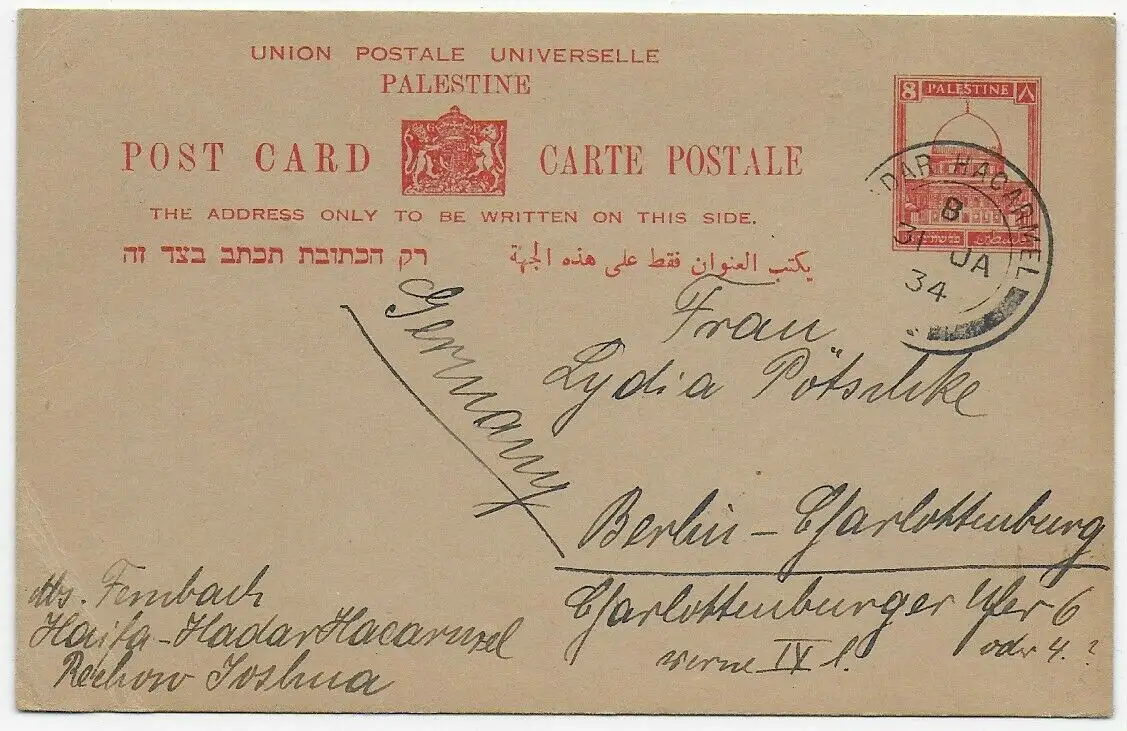 UNION POSTALE UNIVERSELLE
PALESTINE
POST CARD CARTE POSTALE
THE ADDRESS ONLY TO BE WRITTEN ON THIS SIDE.
רק הכתובת תכתב בצד זה
يكتب العنوان فقط على هذه الجهة
8 PALESTINE ٨
فلسطين
HADAR HACARMEL
B
31 JA
34
Germany
Frau
Lydia Pötschke
Berlin-Charlottenburg
Charlottenburger Ufer 6
oder 4.?
IV l.
Abs. Fernbach
Haifa-Hadar Hacarmel
Rechow Joshua